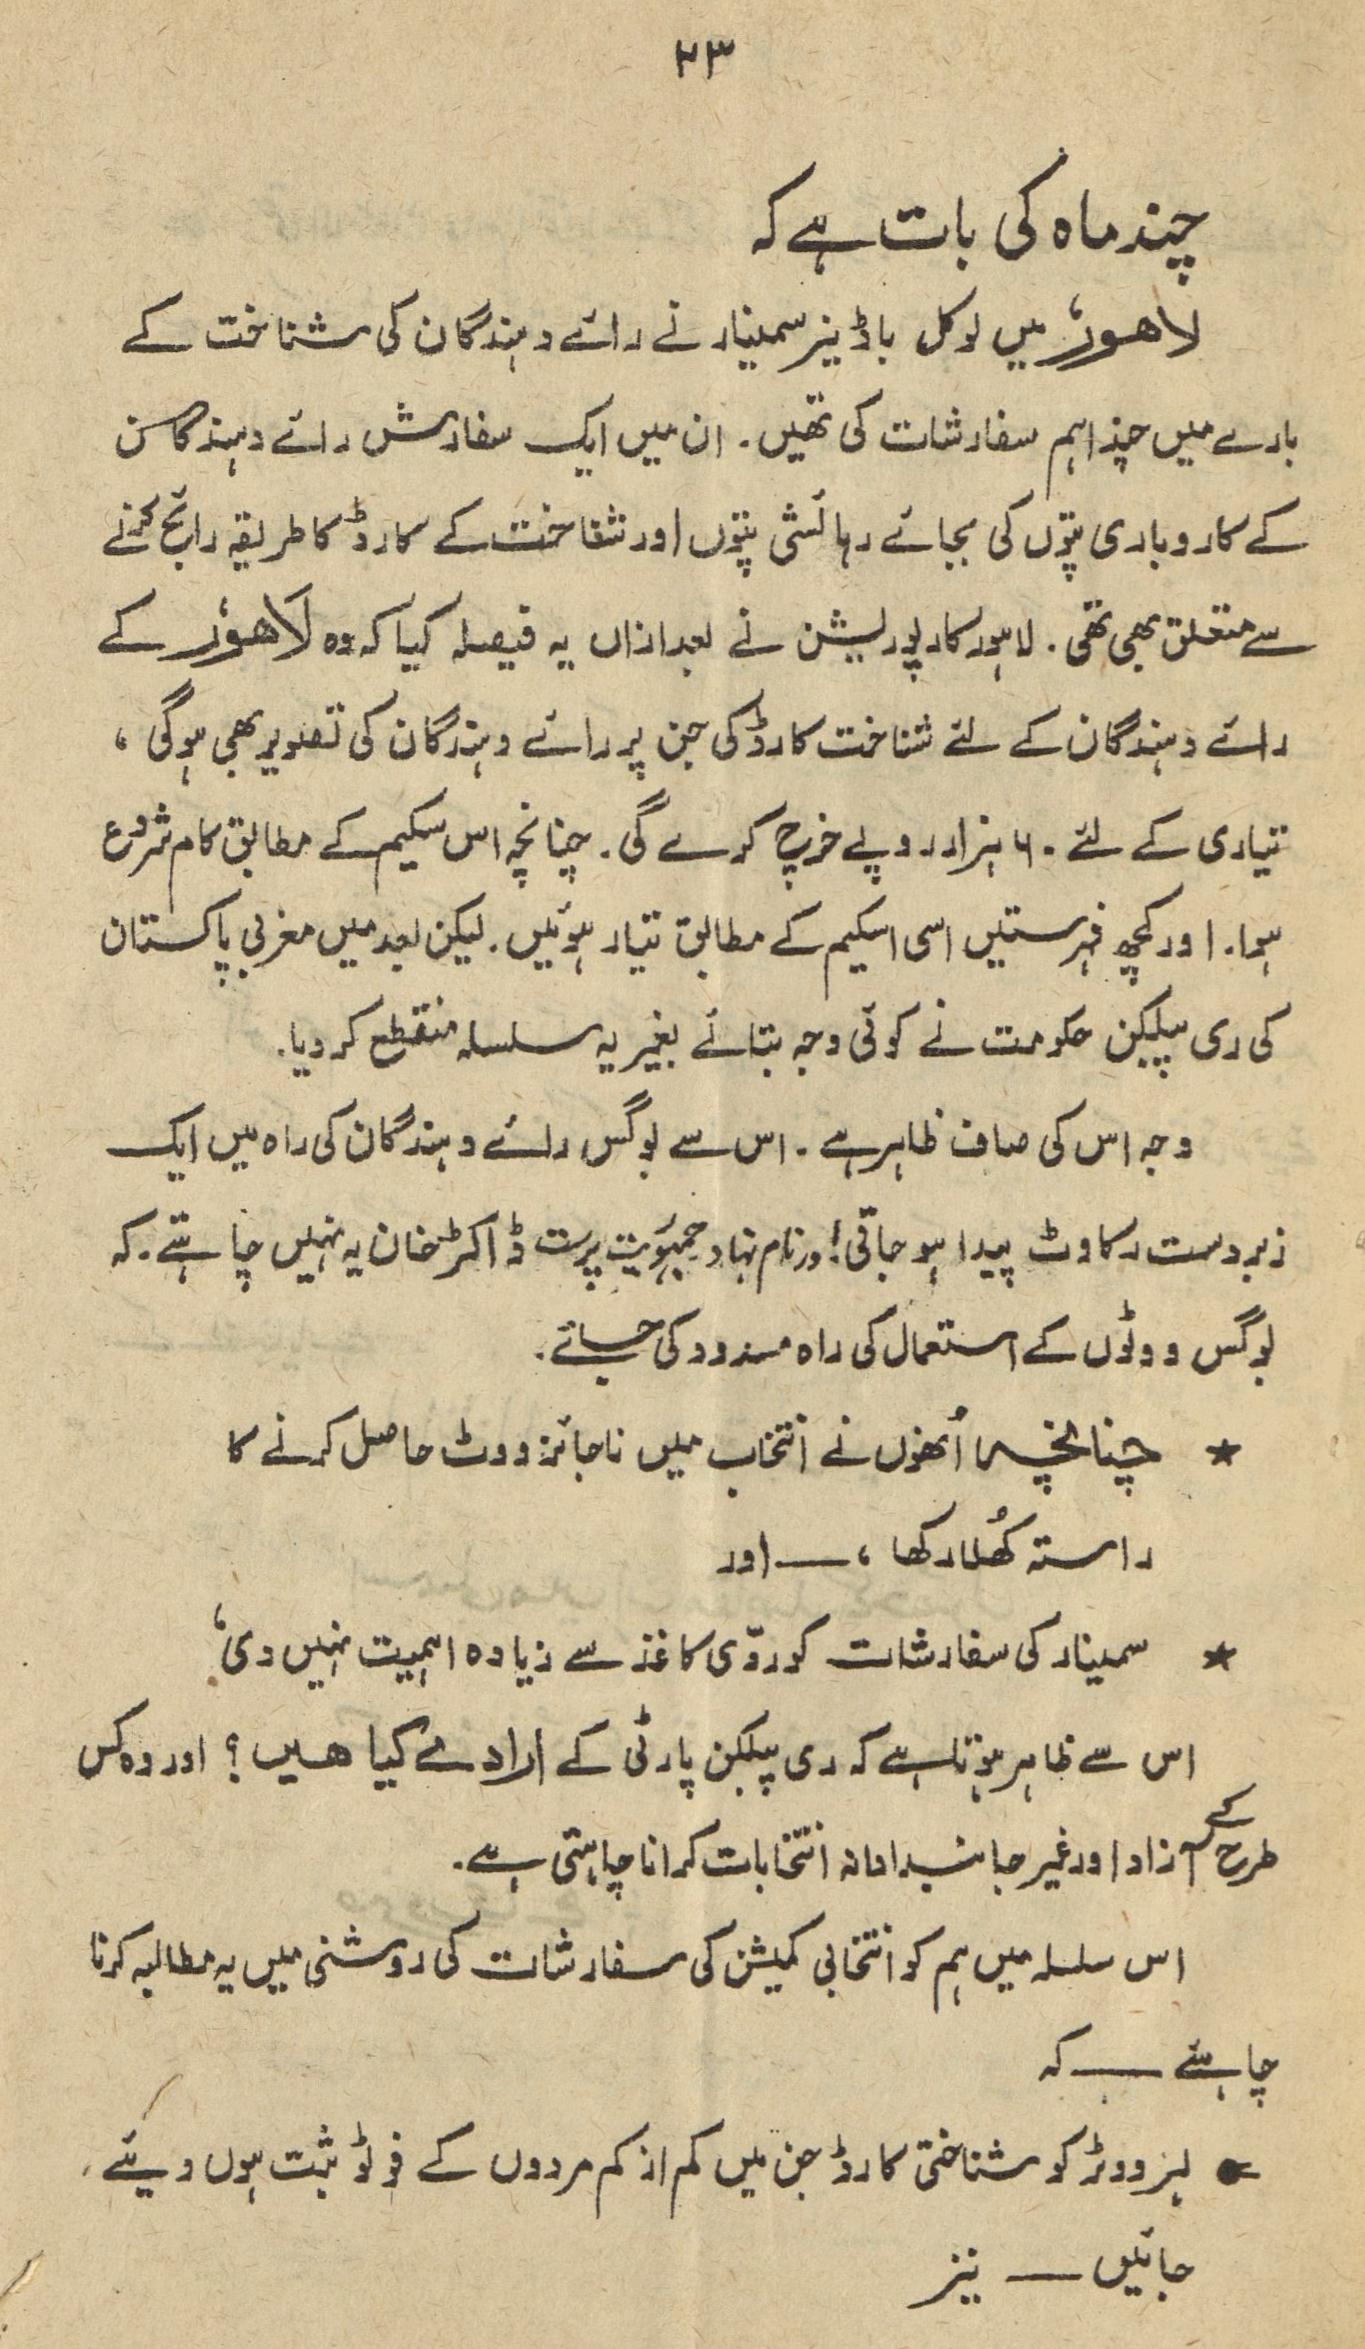 ۲۳
چند ماہ کی بات ہے کہ
لاہور میں لوکل باڈیز سمینار نے رائے دہندگان کی شناخت کے
بارے میں چند اہم سفارشات کی تھیں۔ ان میں ایک سفارش رائے دہندگان
کے کاروباری پتوں کی بجائے رہائشی پتوں اور شناخت کے کارڈ کا طریقہ رائج کرنے
سے متعلق بھی تھی۔ لاہور کارپوریشن نے بعد ازاں یہ فیصلہ کیا کہ وہ لاہور کے
رائے دہندگان کے لئے شناخت کارڈ کی جن پر رائے دہندگان کی تصویر بھی ہوگی ،
تیاری کے لئے ۶۰ ہزار روپے خرچ کرے گی۔ چنانچہ اس سکیم کے مطابق کام شروع
ہوا۔ اور کچھ فہرستیں اسی اسکیم کے مطابق تیار ہوئیں۔ لیکن بعد میں مغربی پاکستان
کی ری پبلیکن حکومت نے کوئی وجہ بتائے بغیر یہ سلسلہ منقطع کر دیا۔
وجہ اس کی صاف ظاہر ہے۔ اس سے بوگس رائے دہندگان کی راہ میں ایک
زبردست رکاوٹ پیدا ہو جاتی! ورنام نہاد جمہوریت پرست ڈاکٹر خان یہ نہیں چاہتے۔ کہ
بوگس ووٹوں کے استعمال کی راہ مسدود کی جائے۔
★ چنانچہ اُنھوں نے انتخاب میں ناجائز ووٹ حاصل کرنے کا
راستہ کھُلا رکھا ، — اور
★ سمینار کی سفارشات کو ردّی کاغذ سے زیادہ اہمیت نہیں دی ،
اس سے ظاہر ہوتا ہے کہ ری پبلکن پارٹی کے ارادے کیا ہیں ؟ اور وہ کس
طرح کے آزاد اور غیر جانبدارانہ انتخابات کرانا چاہتی ہے۔
اس سلسلہ میں ہم کو انتخابی کمیشن کی سفارشات کی روشنی میں یہ مطالبہ کرنا
چاہئے — کہ
ہر ووٹر کو شناختی کارڈ جن میں کم از کم مردوں کے فوٹو ثبت ہوں دیئے
جائیں — نیز